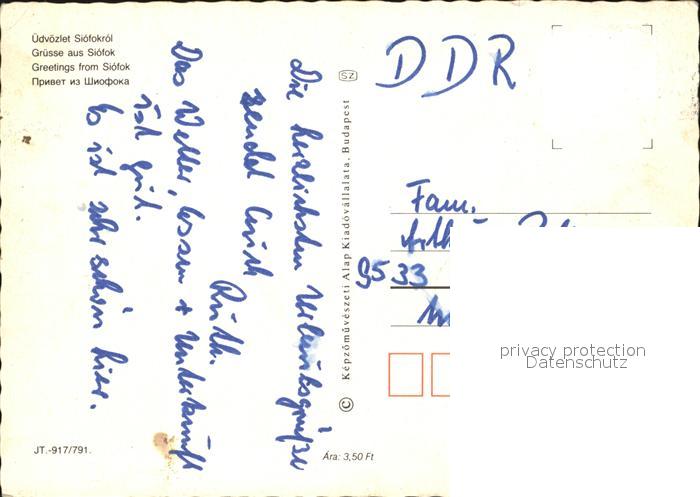 Üdvözlet Siófokról
Grüsse aus Siófok
Greetings from Siófok
Привет из Шиофока
Die herzlichsten Urlaubsgrüße
sendet Euch
Ruth.
Das Wetter, Essen + Unterkunft
ist gut.
Es ist sehr schön hier.
JT.-917/791.
SZ
© Képzőművészeti Alap Kiadóvállalata, Budapest
Ára: 3,50 Ft
DDR
Fam.
9533
privacy protection
Datenschutz